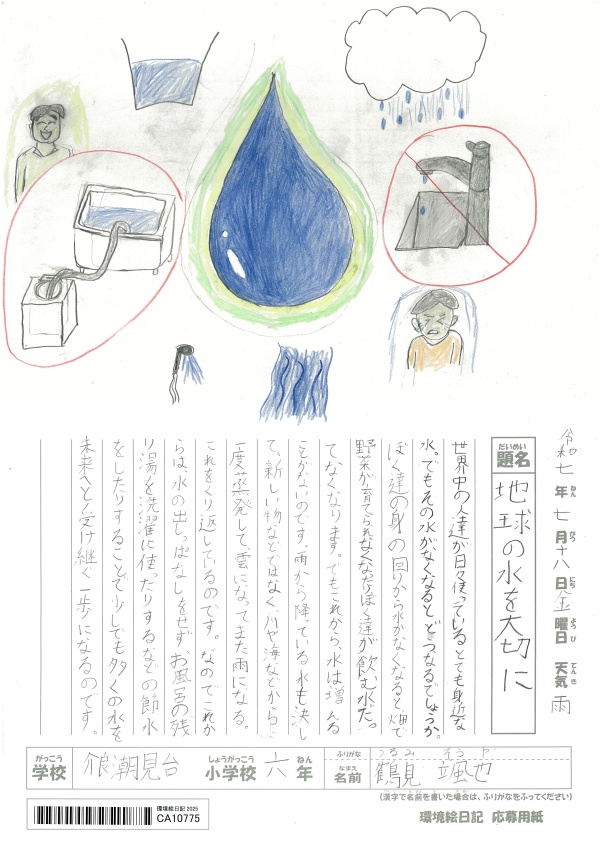 令和七年ねん七月がつ十八日にち金曜日ようび 天気てんき雨
だいめい
題名 地球の水を大切に
世界中の人達が日々使っているとても身近な
水。でもその水がなくなるとどうなるでしょうか。
ぼく達の身の回りから水がなくなると、畑で
野菜が育てられなくなったりぼく達が飲む水だっ
てなくなります。でもこれから、水は増える
ことがないのです。雨から降っている水も決し
て、新しい物などではなく、川や海などから
一度蒸発して、雲になってまた雨になる。
これをくり返しているのです。なのでこれか
らは、水の出しっぱなしをせずお風呂の残
り湯を洗濯に使ったりするなどの節水
をしたりすることで少しでも多くの水を
未来へと受け継ぐ一歩になるのです。
がっこう しょうがっこう ねん
学校 潮見台 小学校 六 年
ふりがな つるみ そうや
なまえ
名前 鶴見 颯也
(漢字で名前を書いた場合は、ふりがなをふってください)
環境絵日記 2025
CA10775
環境絵日記 応募用紙